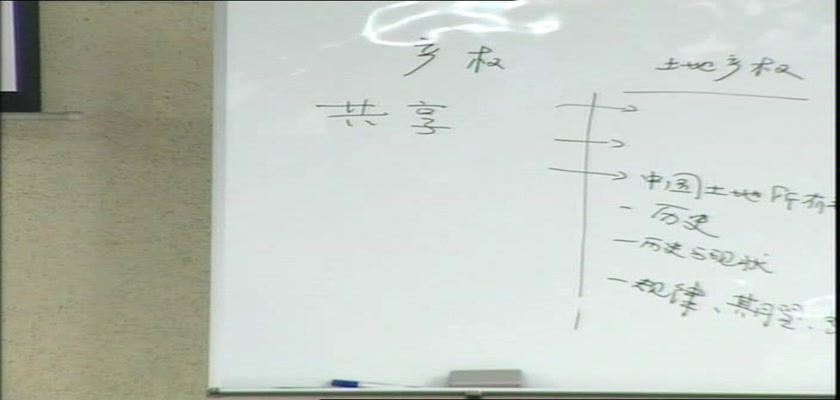 产权
共享
土地产权
中国土地所有
- 历史
- 历史与现状
- 规律、期望、